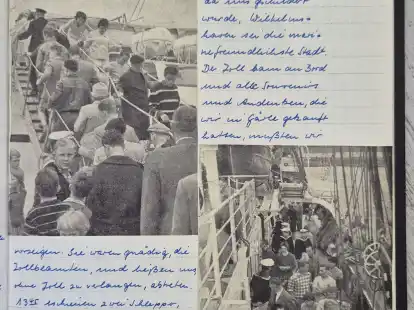 da uns geschildert
wurde, Wilhelms-
haven sei die mari-
nefreundlichste Stadt.
Der Zoll kam an Bord
und alle Souvenirs
und Andenken, die
wir in Gävle gekauft
hatten, mußten wir
vorzeigen. Sie waren gnädig, die
Zollbeamten, und ließen uns
ohne Zoll zu verlangen, abtreten.
13²⁵ erscheinen zwei Schlepper,